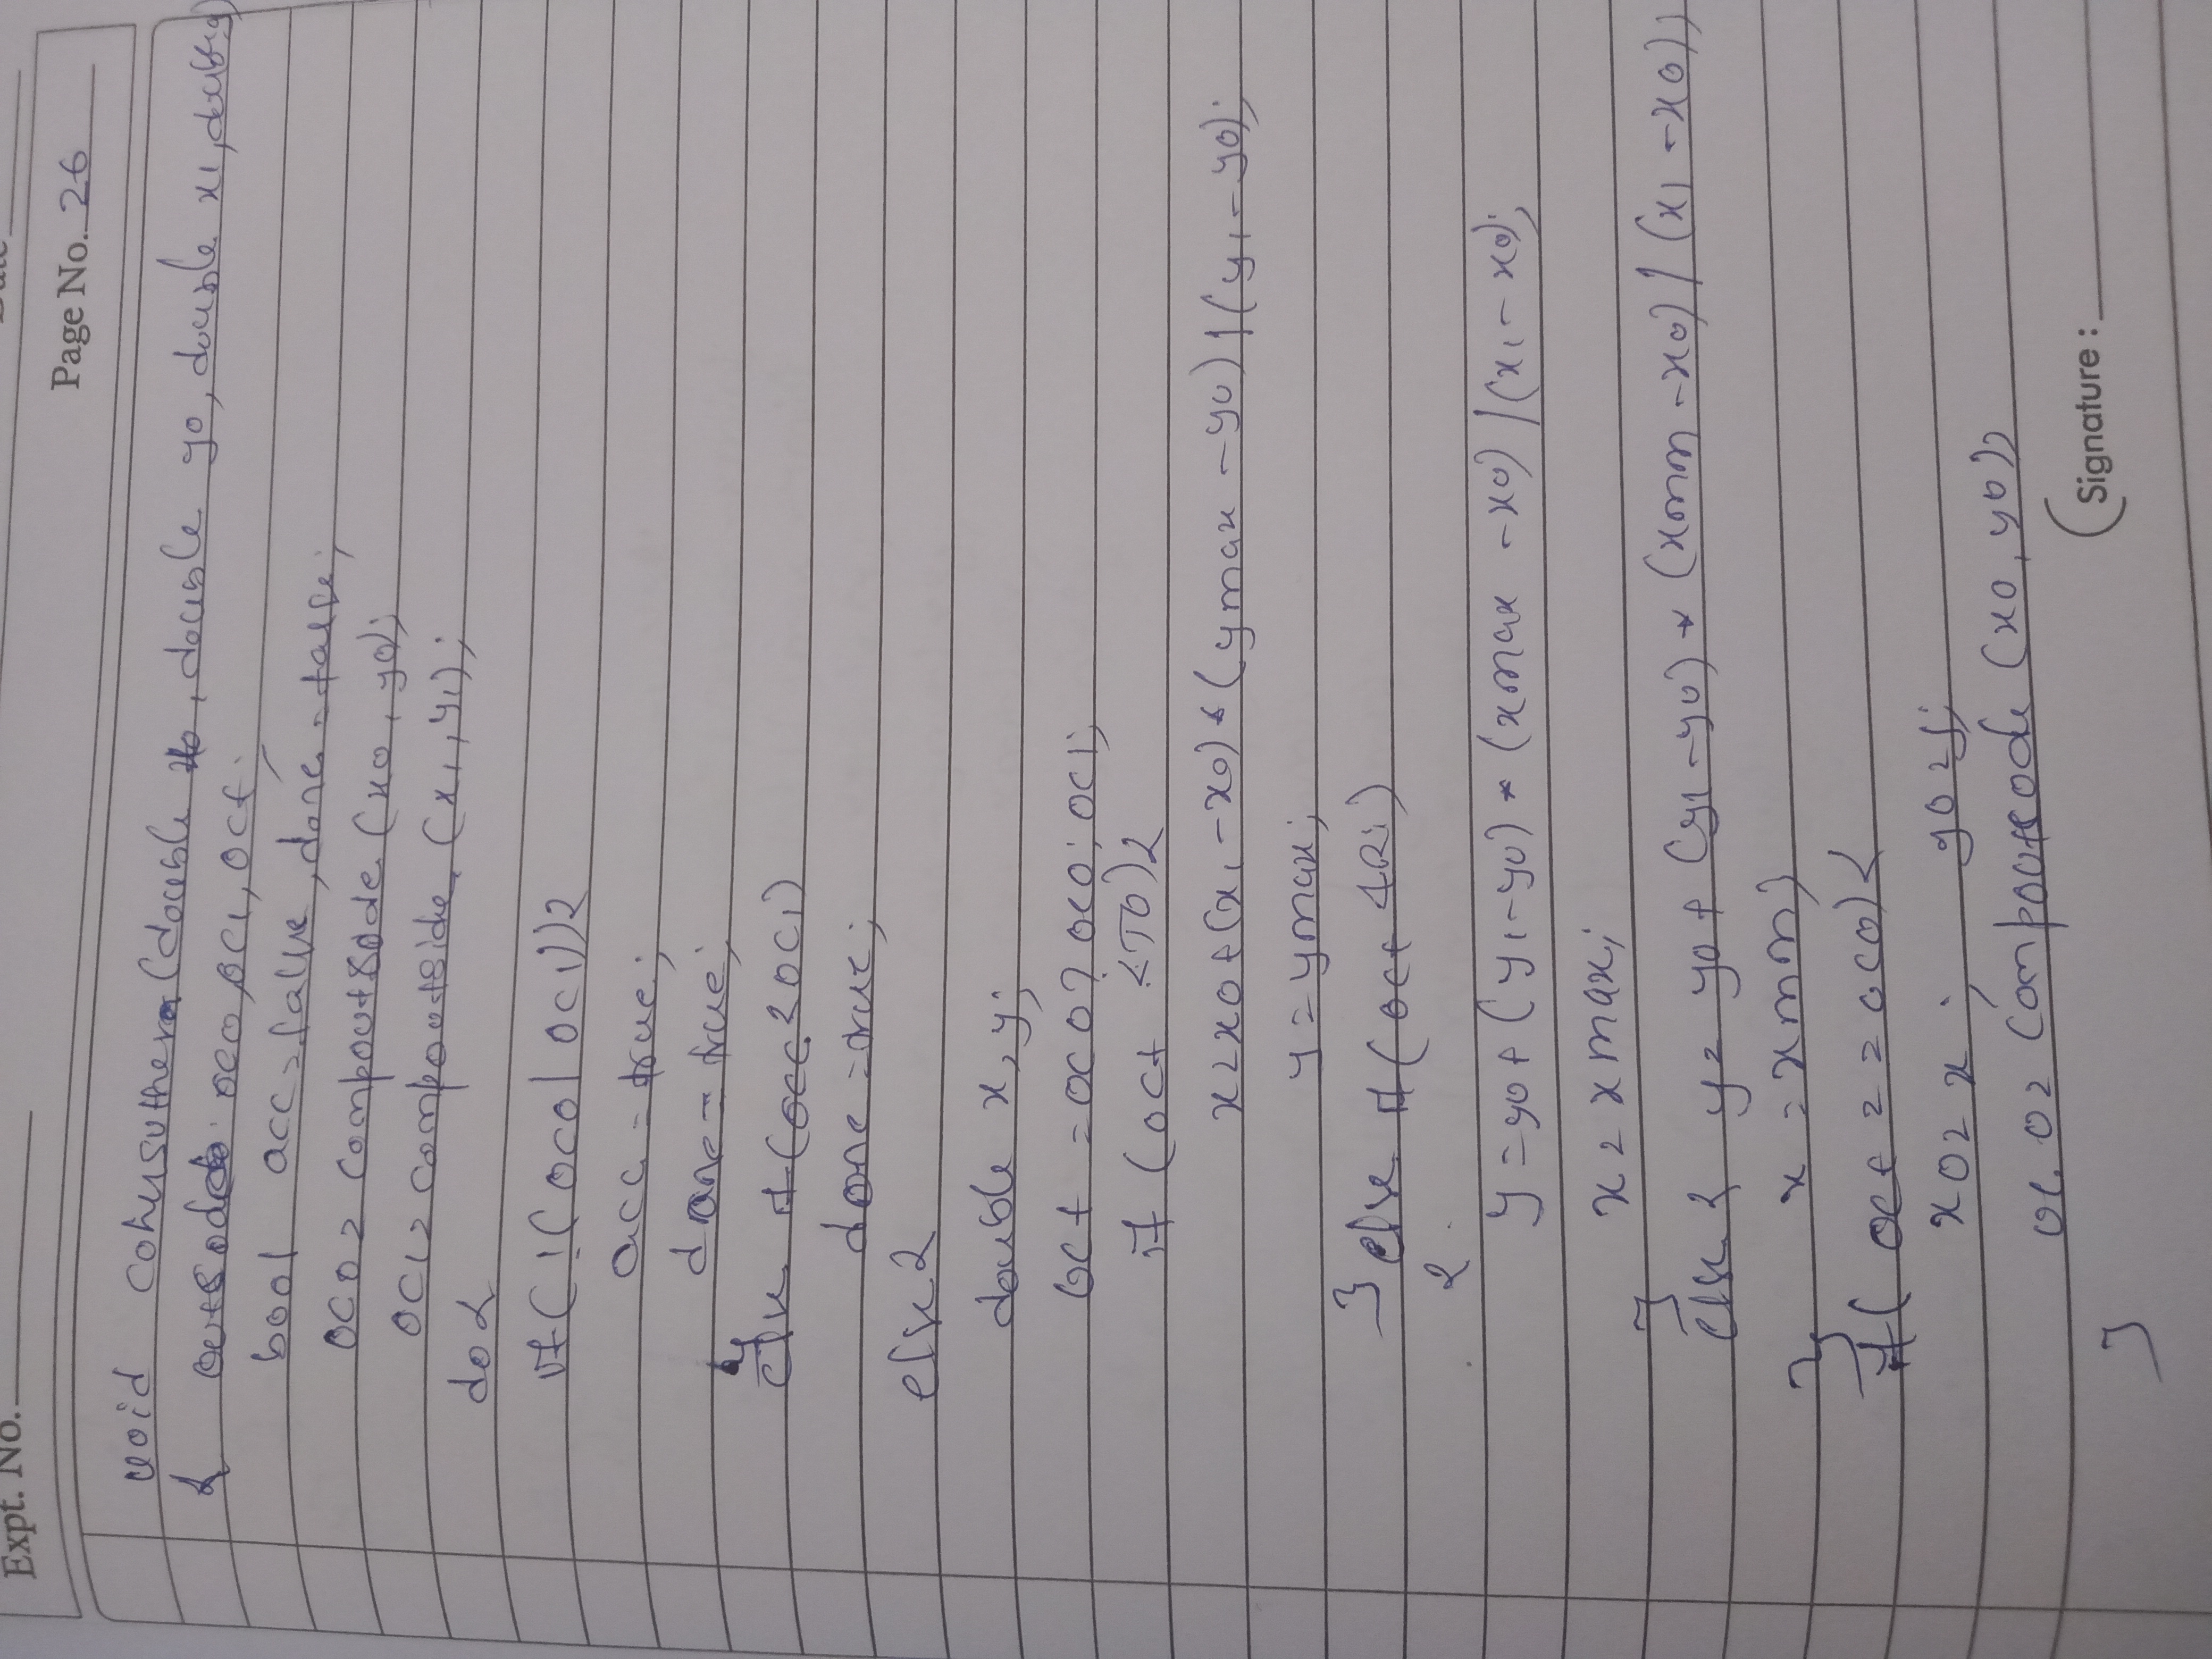 Expt. No.
Page No. 26
void cohensuthera (double x0, double y0, double x1, double y1)
{ outcode oc0, oc1, oct.
bool acc = false, done = false;
oc0 = compoutcode (x0, y0);
oc1 = compoutside (x1, y1);
do {
if (!(oc0 | oc1)) {
acc = true;
done = true;
}
else if (oc0 & oc1)
done = true;
else {
double x, y;
oct = oc0 ? oc0 : oc1;
if (oct & TO) {
x = x0 + (x1 - x0) * (ymax - y0) / (y1 - y0);
y = ymax;
} else if (oct & Ri)
{
y = y0 + (y1 - y0) * (xmax - x0) / (x1 - x0);
x = xmax;
}
else { y = y0 + (y1 - y0) * (xmin - x0) / (x1 - x0);
x = xmin;
}
if (oct == oc0) {
x0 = x. y0 = y;
oc0 = compoutcode (x0, y0);
}
Signature :